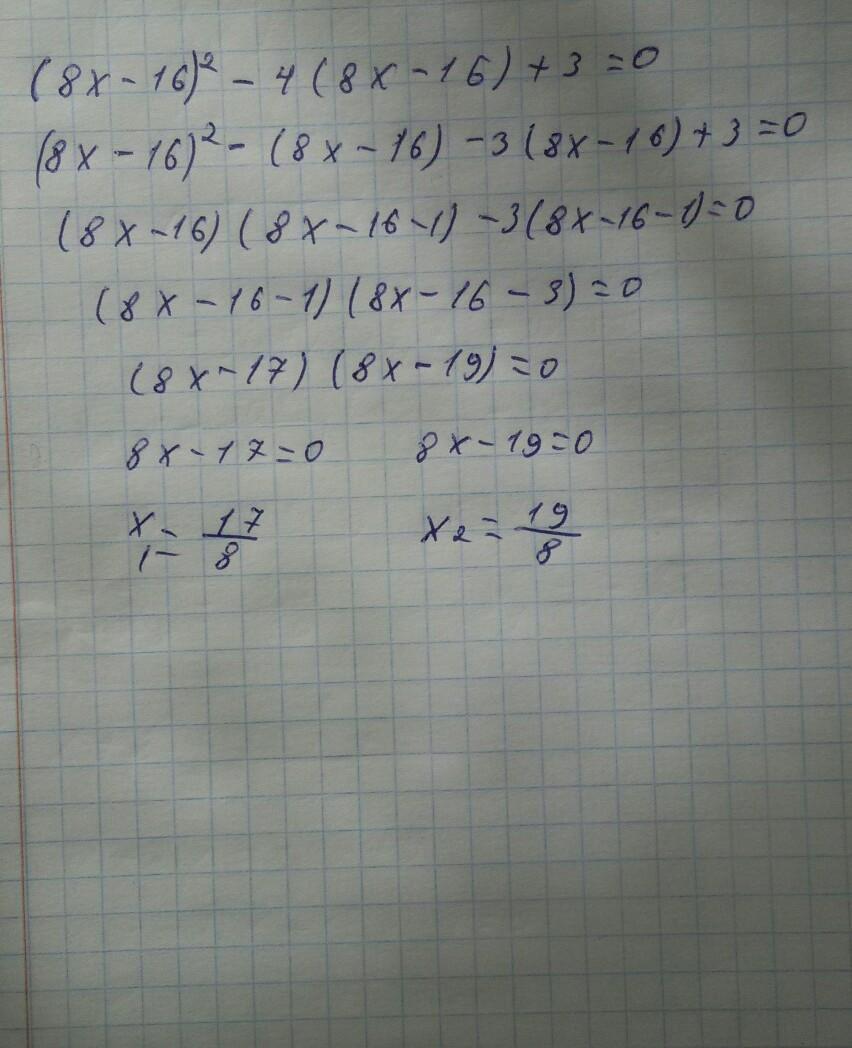 (8x-16)² - 4(8x-16)+3=0
(8x-16)² - (8x-16) -3(8x-16)+3=0
(8x-16)(8x-16-1) -3(8x-16-1)=0
(8x-16-1)(8x-16-3)=0
(8x-17)(8x-19)=0
8x-17=0 8x-19=0
x₁=17/8 x₂=19/8